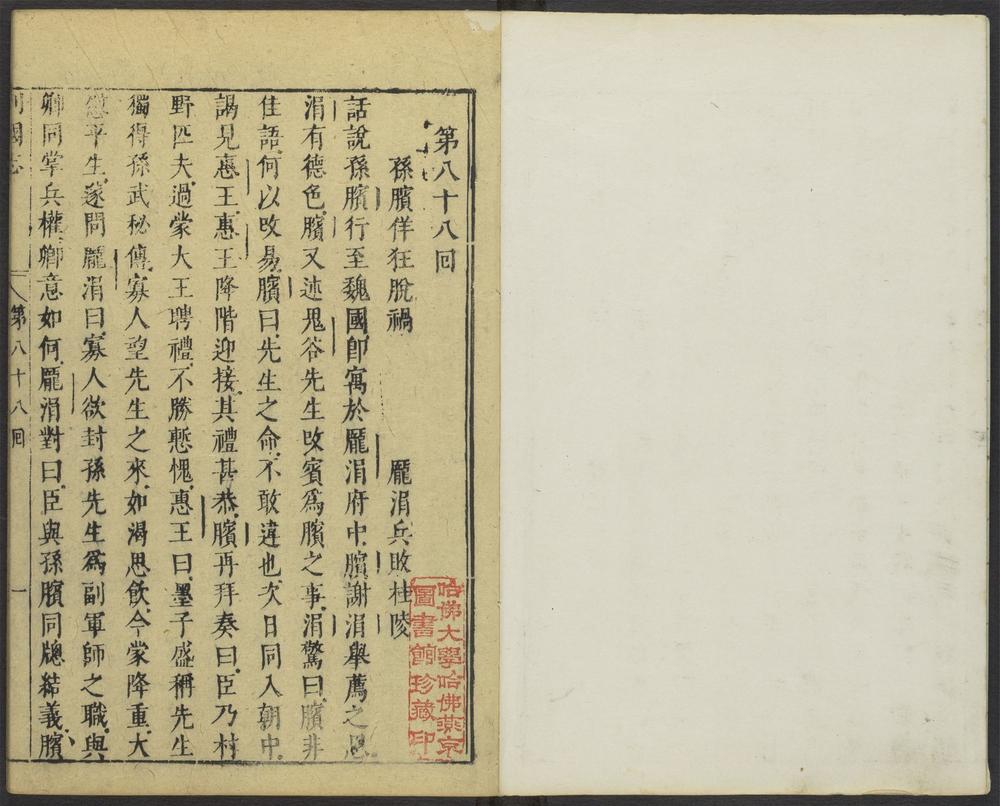 第八十八回
孫臏佯狂脫禍　龐涓兵敗桂陵
話說孫臏行至魏國、卽寓於龐涓府中、臏謝涓舉薦之恩、
涓有德色、臏又述鬼谷先生改賓爲臏之事、涓驚曰、臏非
佳語、何以改易、臏曰、先生之命、不敢違也、次日同入朝中、
謁見惠王、惠王降階迎接、其禮甚恭、臏再拜奏曰、臣乃村
野匹夫、過蒙大王聘禮、不勝慙愧、惠王曰、墨子盛稱先生
獨得孫武秘傳、寡人望先生之來、如渴思飮、今蒙降重、大
慰平生、遂問龐涓曰、寡人欲封孫先生爲副軍師之職、與
卿同掌兵權、卿意如何、龐涓對曰、臣與孫臏同牕結義、臏
列國志　第八十八回　一
哈佛大學哈佛燕京
圖書館珍藏印